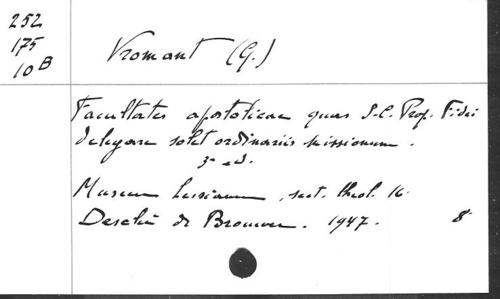 252
175
10 B
Vromant (G.)
Facultates apostolicae quas S.C. Prop. Fidei
delegare solet ordinariis missionum.
3e ed.
Museum Lessianum, sect. theol. 16.
Desclée de Brouwer. 1947. 8°